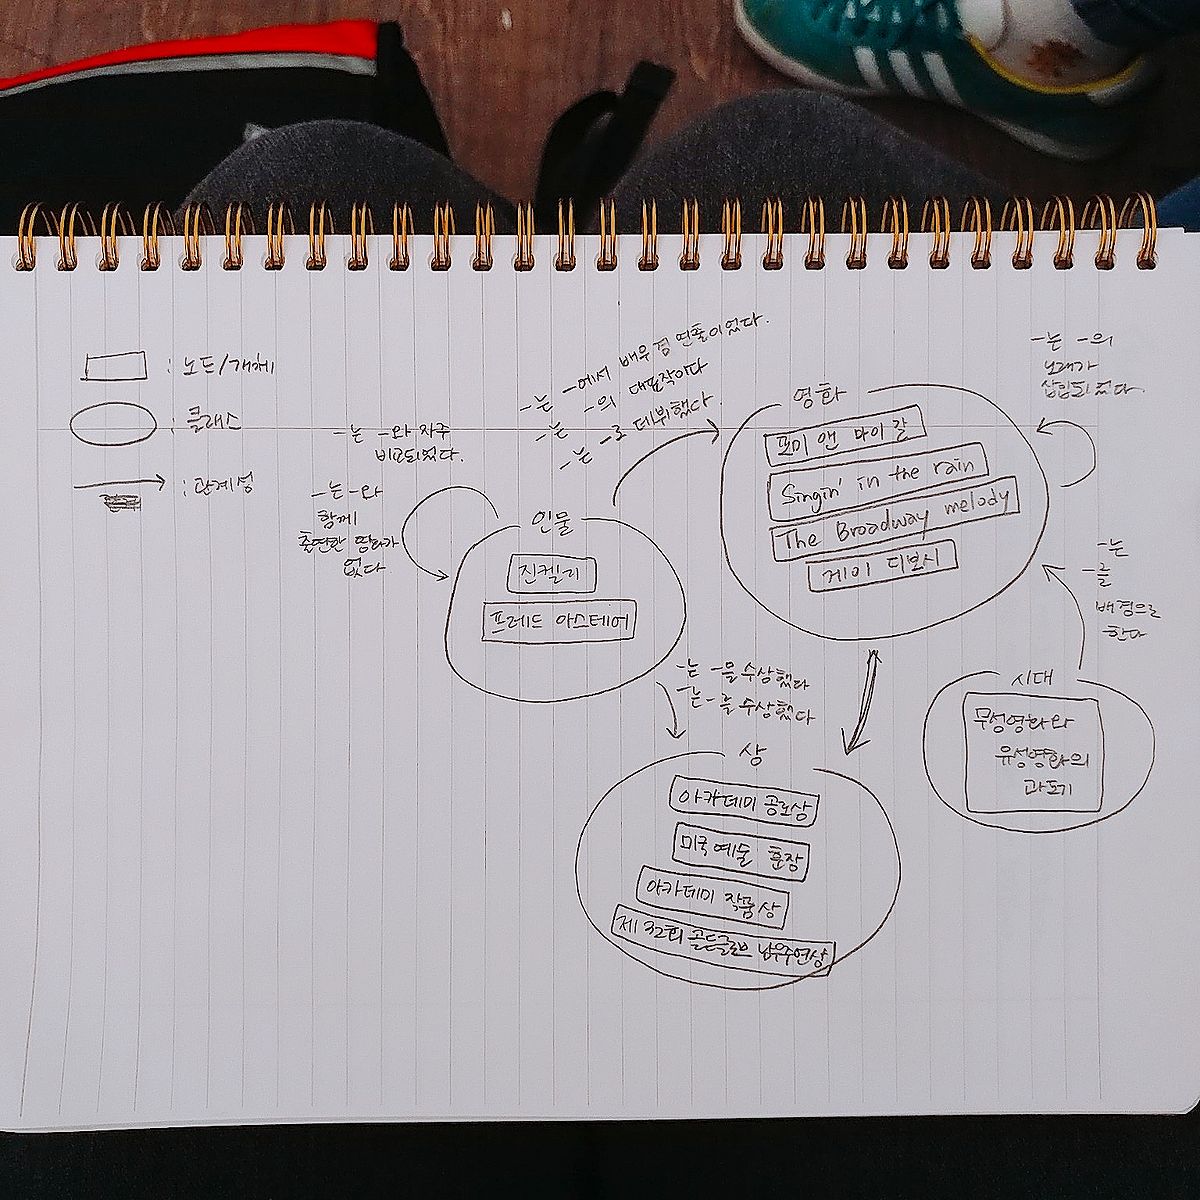 : 노드/개체
: 클래스
: 관계성
-는 -와 자주
비교되었다.
-는 -와
함께
출연한 영화가
없다
-는 -에서 배우 겸 연출이었다.
-는 -의 대표작이다
-는 -로 데뷔했다.
-는 -의
노래가
삽입되었다.
인물
진켈리
프레드 아스테어
영화
포미 앤 마이 갈
Singin' in the rain
The Broadway melody
게이 디보시
-는
-를
배경으로
한다
시대
무성영화와
유성영화의
과도기
-는 -을 수상했다
-는 -를 수상했다
상
아카데미 공로상
미국예술 훈장
아카데미 작품상
제 32회 골든글로브 남우주연상